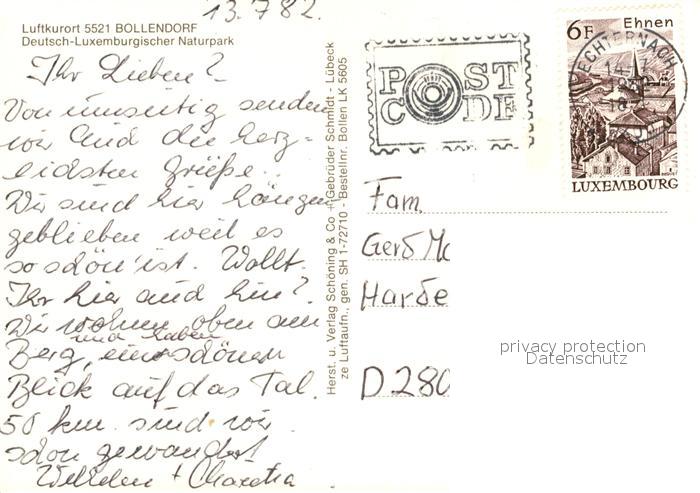 13.7.82.
Luftkurort 5521 BOLLENDORF
Deutsch-Luxemburgischer Naturpark
Ihr Lieben!
Von umseitig senden
wir Euch die herz-
lichsten Grüße.
Wir sind hier hängen
geblieben weil es
so schön ist. Wollt
Ihr hier auch hin?
Wir wohnen oben am
und haben
Berg, einen schönen
Blick auf das Tal.
50 km. sind wir
schon gewandert
Wilhelm +
Herst. u. Verlag Schöning & Co + Gebrüder Schmidt - Lübeck
ze Luftaufn., gen. SH 1-72710 - Bestellnr. Bollen LK 5605
POST
CODE
6F Ehnen
ECHTERNACH
LUXEMBOURG
Fam.
Gerd Mc
Harde
D 280
privacy protection
Datenschutz